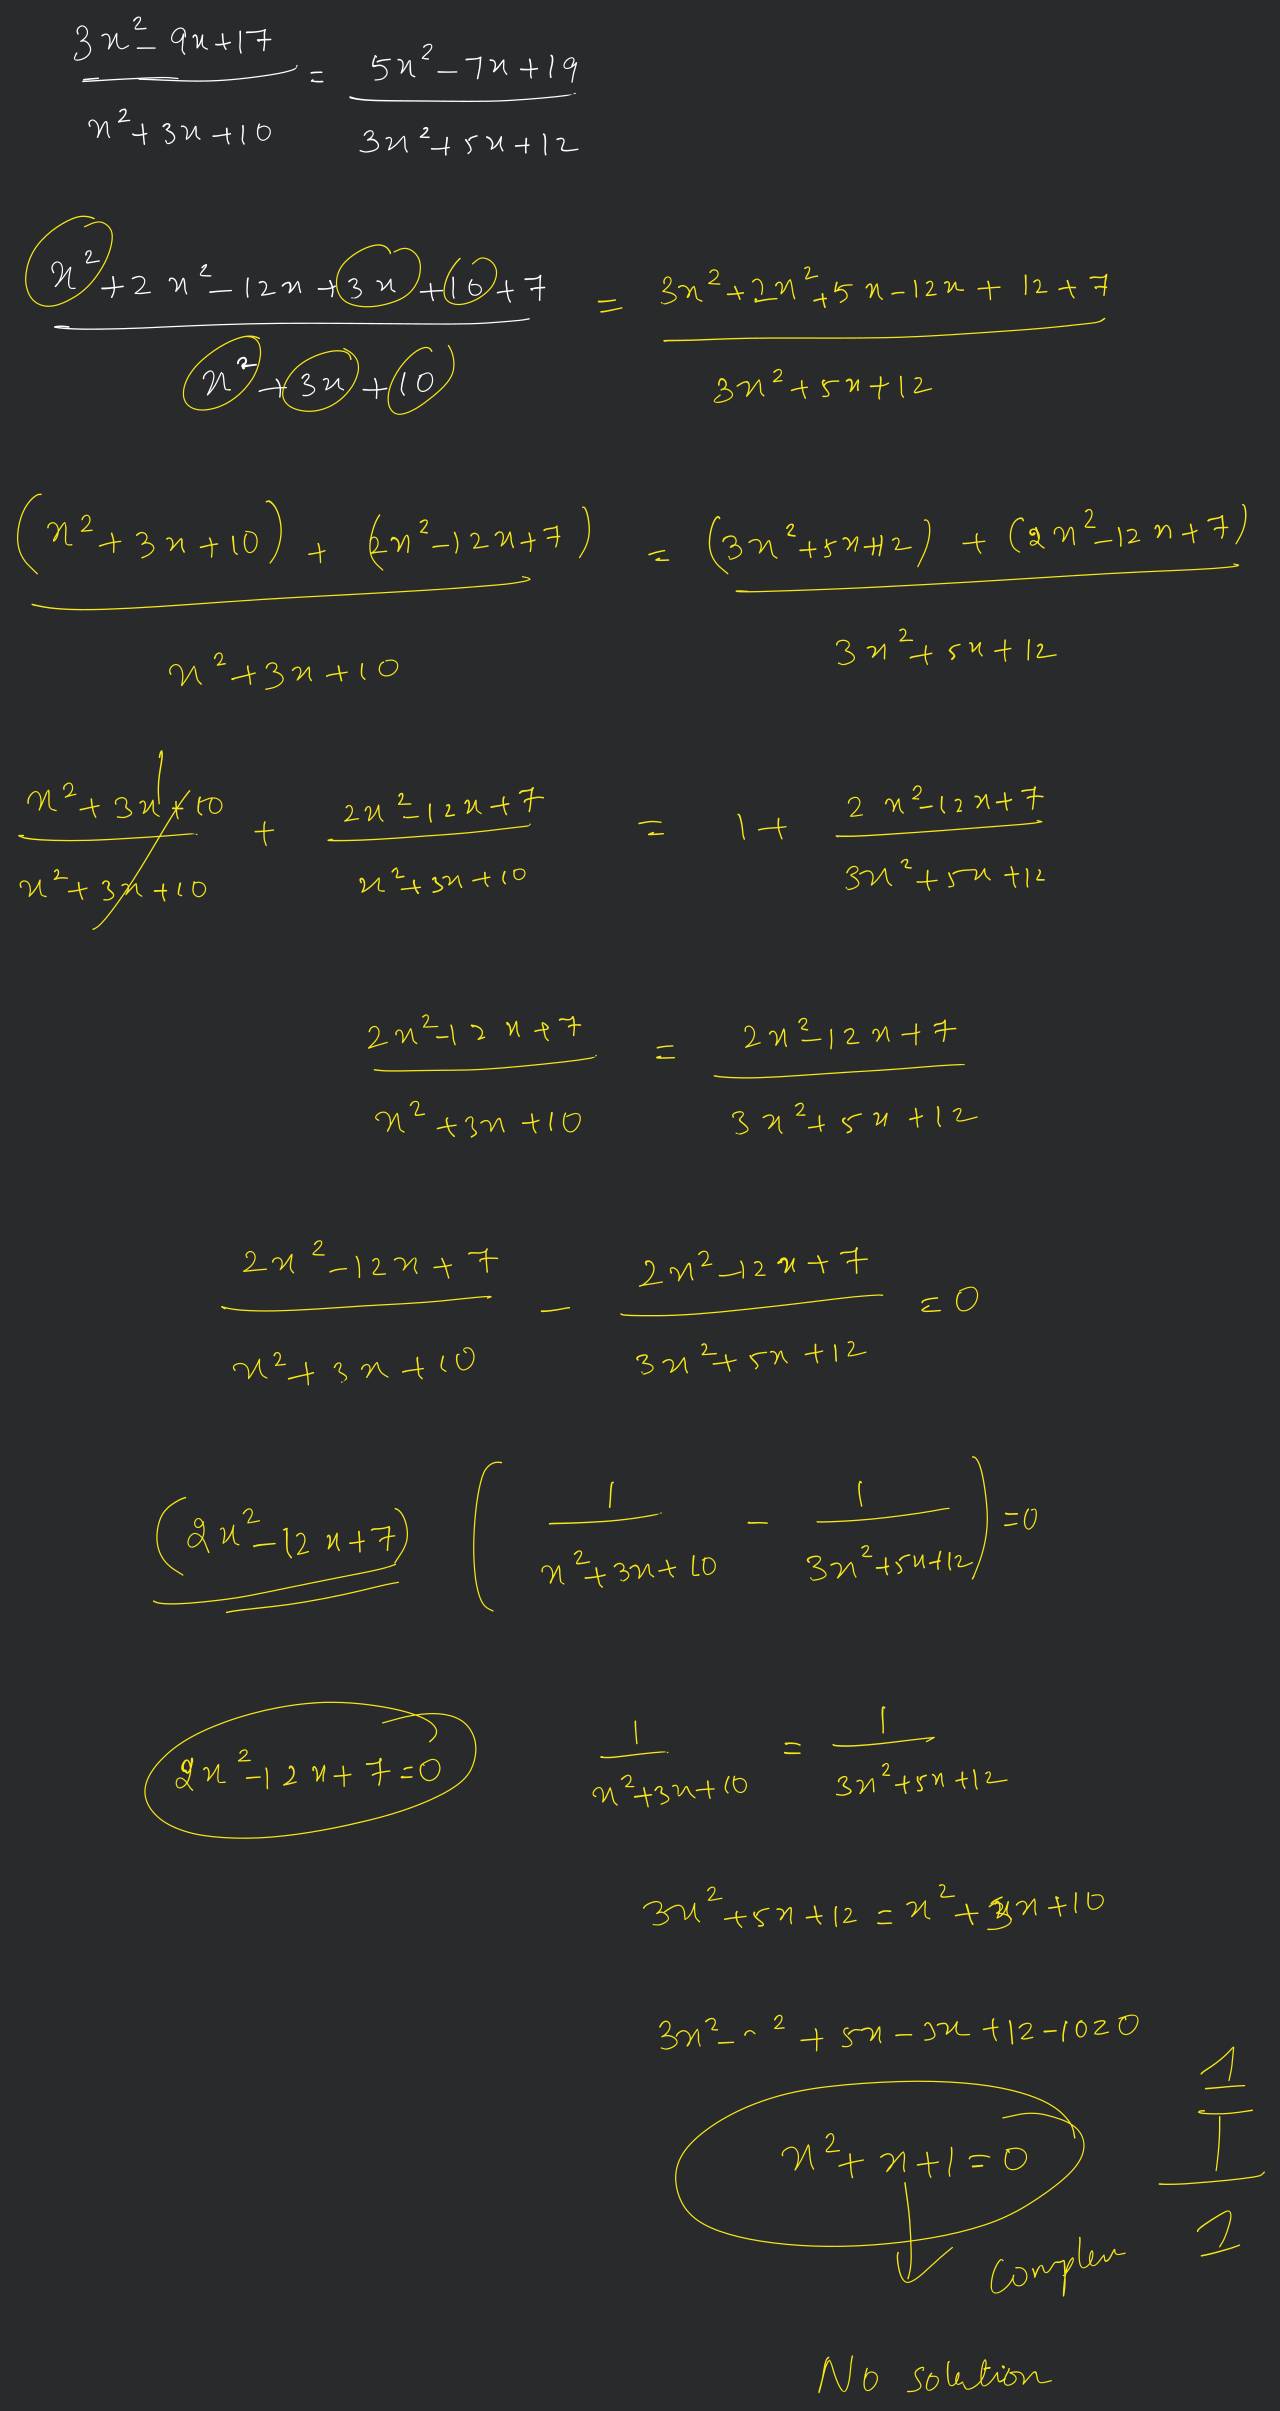 3x²-9x+17 / x²+3x+10 = 5x²-7x+19 / 3x²+5x+12
x²+2x²-12x+3x+10+7 / x²+3x+10 = 3x²+2x²+5x-12x+12+7 / 3x²+5x+12
(x²+3x+10)+(2x²-12x+7) / x²+3x+10 = (3x²+5x+12)+(2x²-12x+7) / 3x²+5x+12
x²+3x+10 / x²+3x+10 + 2x²-12x+7 / x²+3x+10 = 1+ 2x²-12x+7 / 3x²+5x+12
2x²-12x+7 / x²+3x+10 = 2x²-12x+7 / 3x²+5x+12
2x²-12x+7 / x²+3x+10 - 2x²-12x+7 / 3x²+5x+12 =0
(2x²-12x+7) (1 / x²+3x+10 - 1 / 3x²+5x+12) =0
2x²-12x+7=0 1 / x²+3x+10 = 1 / 3x²+5x+12
3x²+5x+12=x²+3x+10
3x²-x²+5x-3x+12-10=0
x²+x+1=0
1
1
1
Complex
No solution